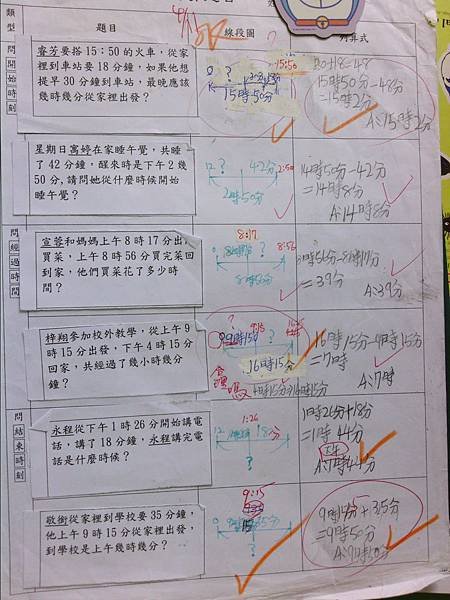 類型
題目
線段圖
列算式
問開始時刻
睿芳要搭15:50的火車，從家
裡到車站要18分鐘，如果他想
提早30分鐘到車站，最晚應該
幾時幾分從家裡出發？
?
15:50
15時50分
30+18=48
15時50分-48分
=15時2分
A:15時2分
星期日寓婷在家睡午覺，共睡
了42分鐘，醒來時是下午2幾
50分，請問她從什麼時候開始
睡午覺？
12
?
42分
2:50
2時50分
14時50分-42分
=14時8分
A:14時8分
問經過時間
宣蓉和媽媽上午8時17分出
買菜，上午8時56分買完菜回
到家，他們買菜花了多少時
間？
8:17
8:56
0
?
8時56分
8時56分-8時17分
=39分
A:39分
梓翔參加校外教學，從上午9
時15分出發，下午4時15分
回家，共經過了幾小時幾分
鐘？
?
16時15分
16時15分-9時15分
=7時
A:7時
合理嗎
問結束時刻
永程從下午1時26分開始講電
話，講了18分鐘，永程講完電
話是什麼時候？
1:26
12
18分
?
1時26分+18分
=1時44分
下午
A:1時44分
敬衡從家裡到學校要35分鐘，
他上午9時15分從家裡出發，
到學校是上午幾時幾分？
9:15
0
35分
?
9時15分+35分
=9時50分
A:9時50分